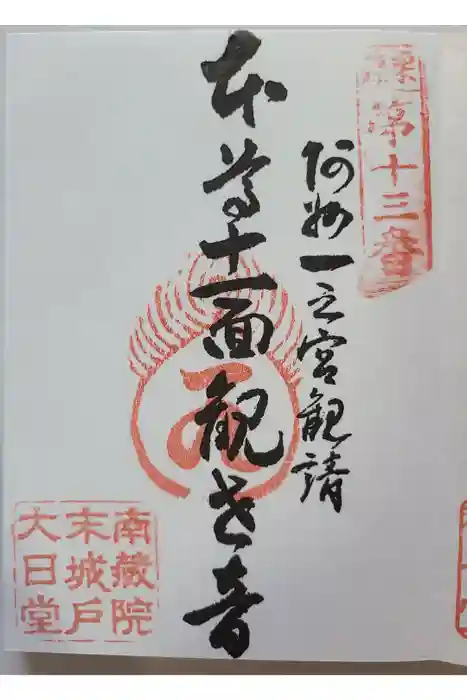 第十三番
阿州一之宮観請
本尊十一面観世音
南藏院
末城戸
大日堂